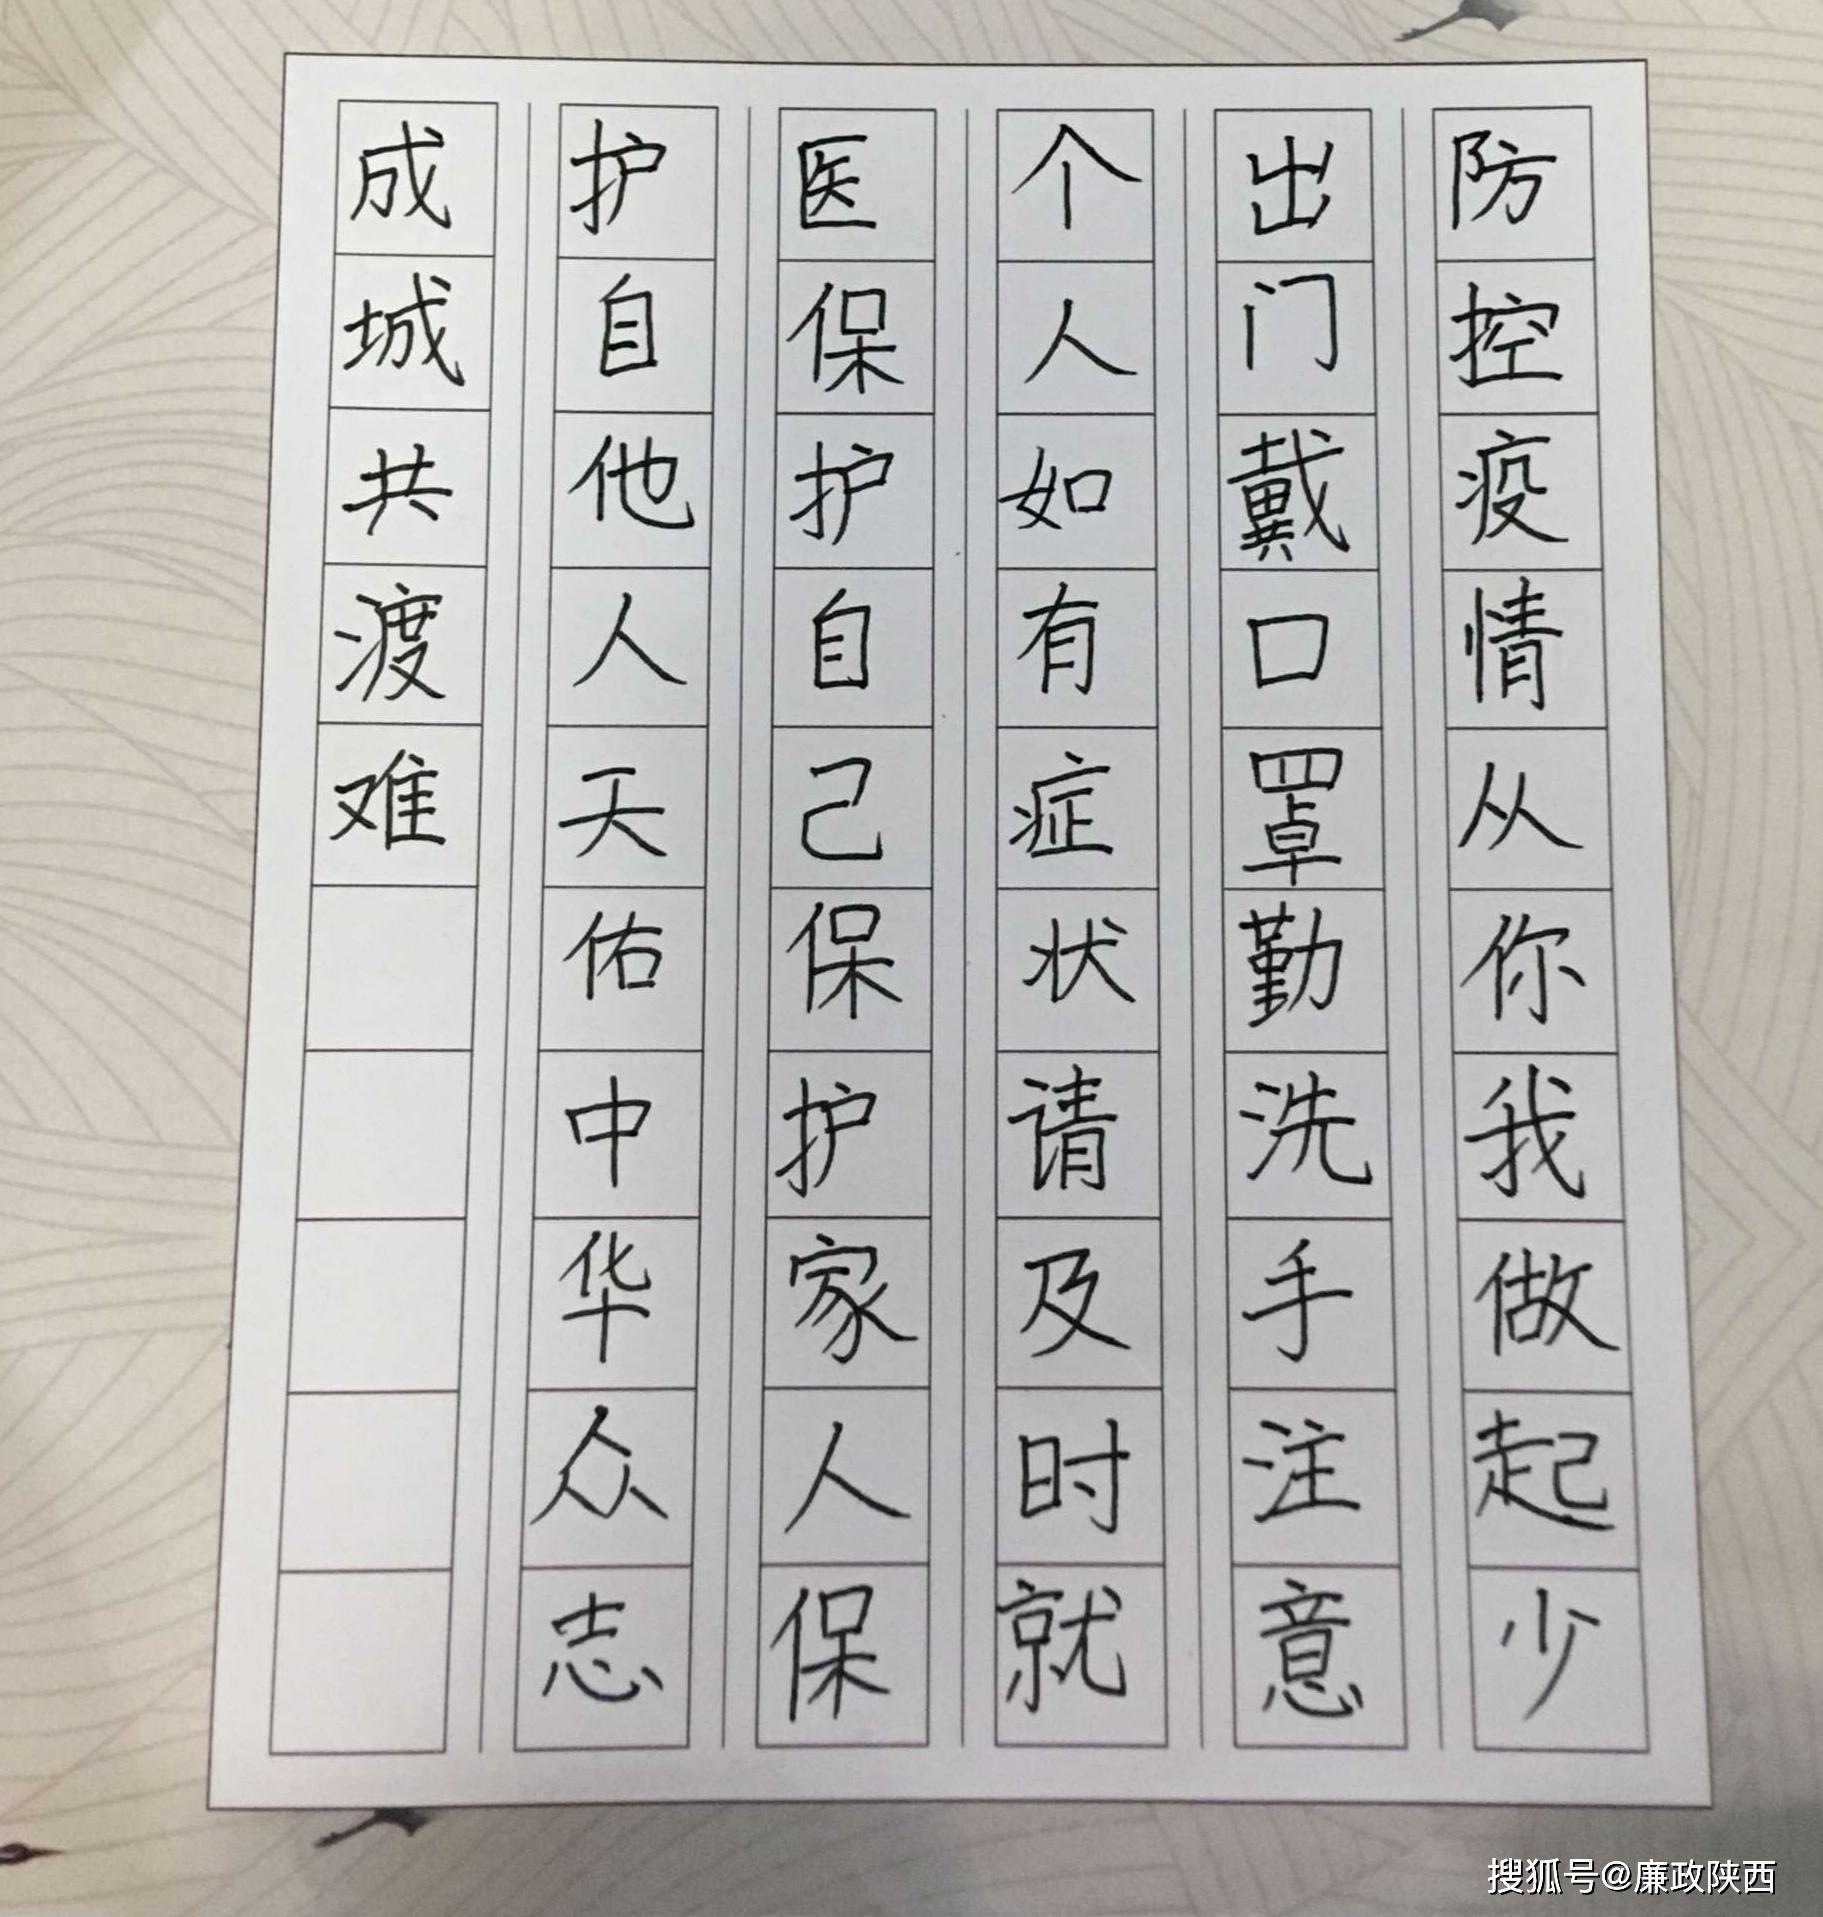 防控疫情从你我做起少
出门戴口罩勤洗手注意
个人如有症状请及时就
医保护自己保护家人保
护自他人天佑中华众志
成城共渡难
搜狐号@廉政陕西